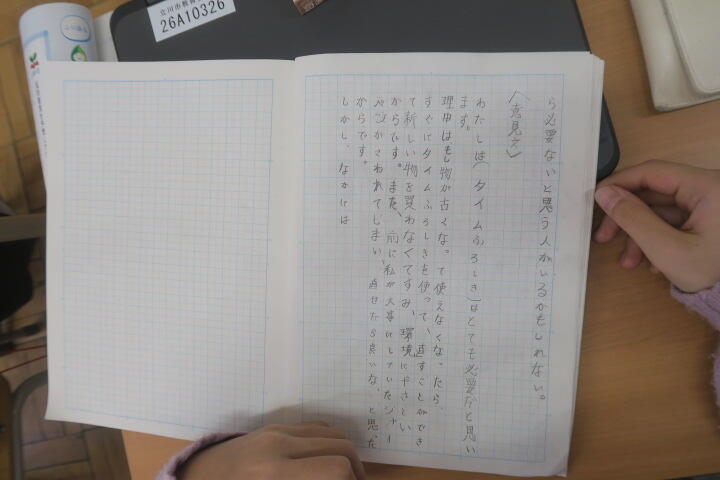 ら必要ないと思う人がいるかもしれない。
〈意見文〉
わたしは(タイムふろしき)はとても必要だと思い
ます。
理由はもし物が古くなって使えなくなったら、
すぐにタイムふろしきを使って、直すことができ
て新しい物を買わなくてすみ、環境にやさしい
からです。また、前に私が大事にしていたシャー
ペンがこわれてしまい、直せたら良いな、と思った
からです。
しかし、なかには
立川市教育
26A10326